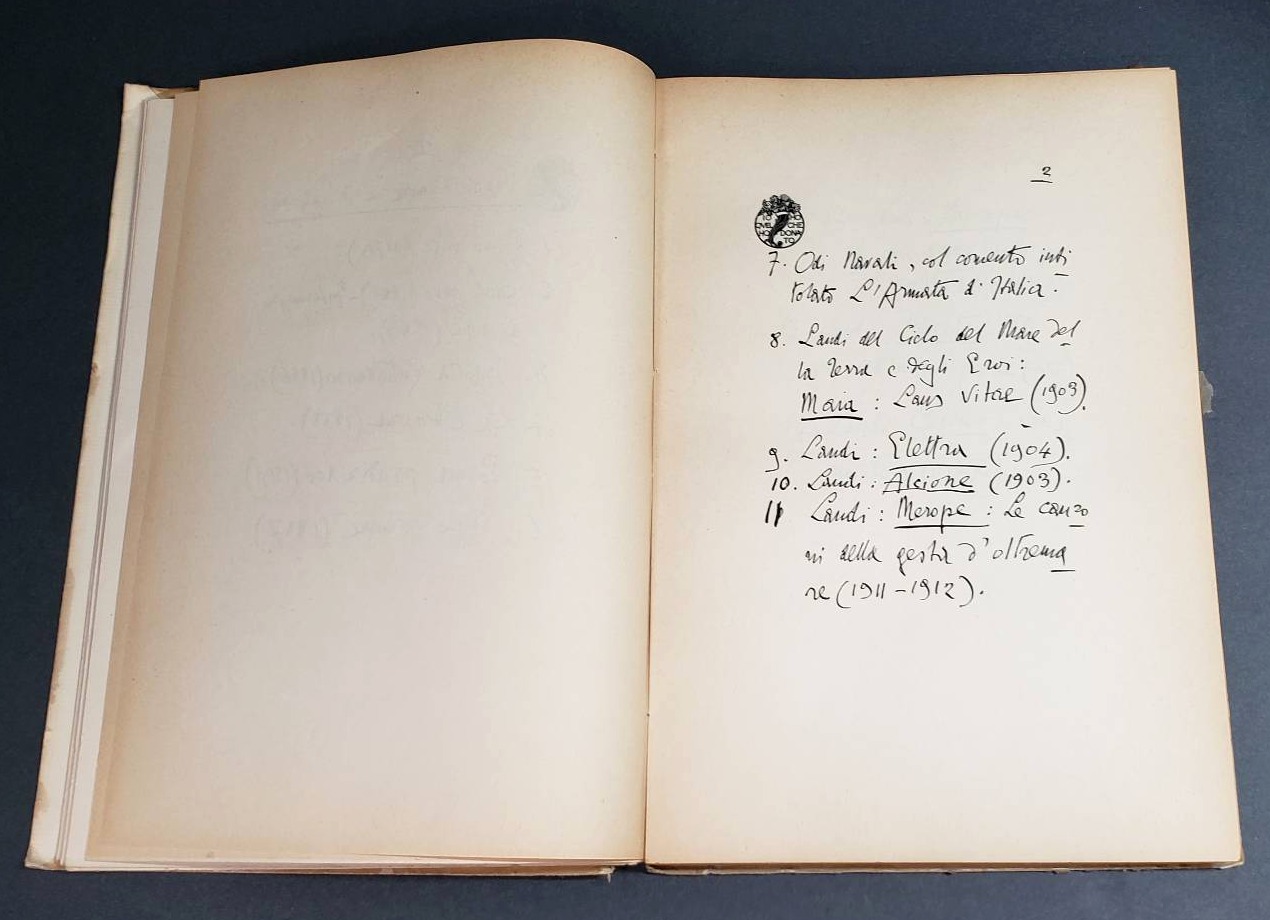 2
IO HO
QVEL CHE
HO DONA
TO
7. Odi Navali, col comento inti
tolato L'Armata d'Italia.
8. Laudi del Ciclo del Mare del
la Terra e degli Eroi:
Maia : Laus Vitae (1903).
9. Laudi : Elettra (1904).
10. Laudi : Alcione (1903).
11 Laudi : Merope : Le canzo
ni della gesta d'oltrema
re (1911-1912).